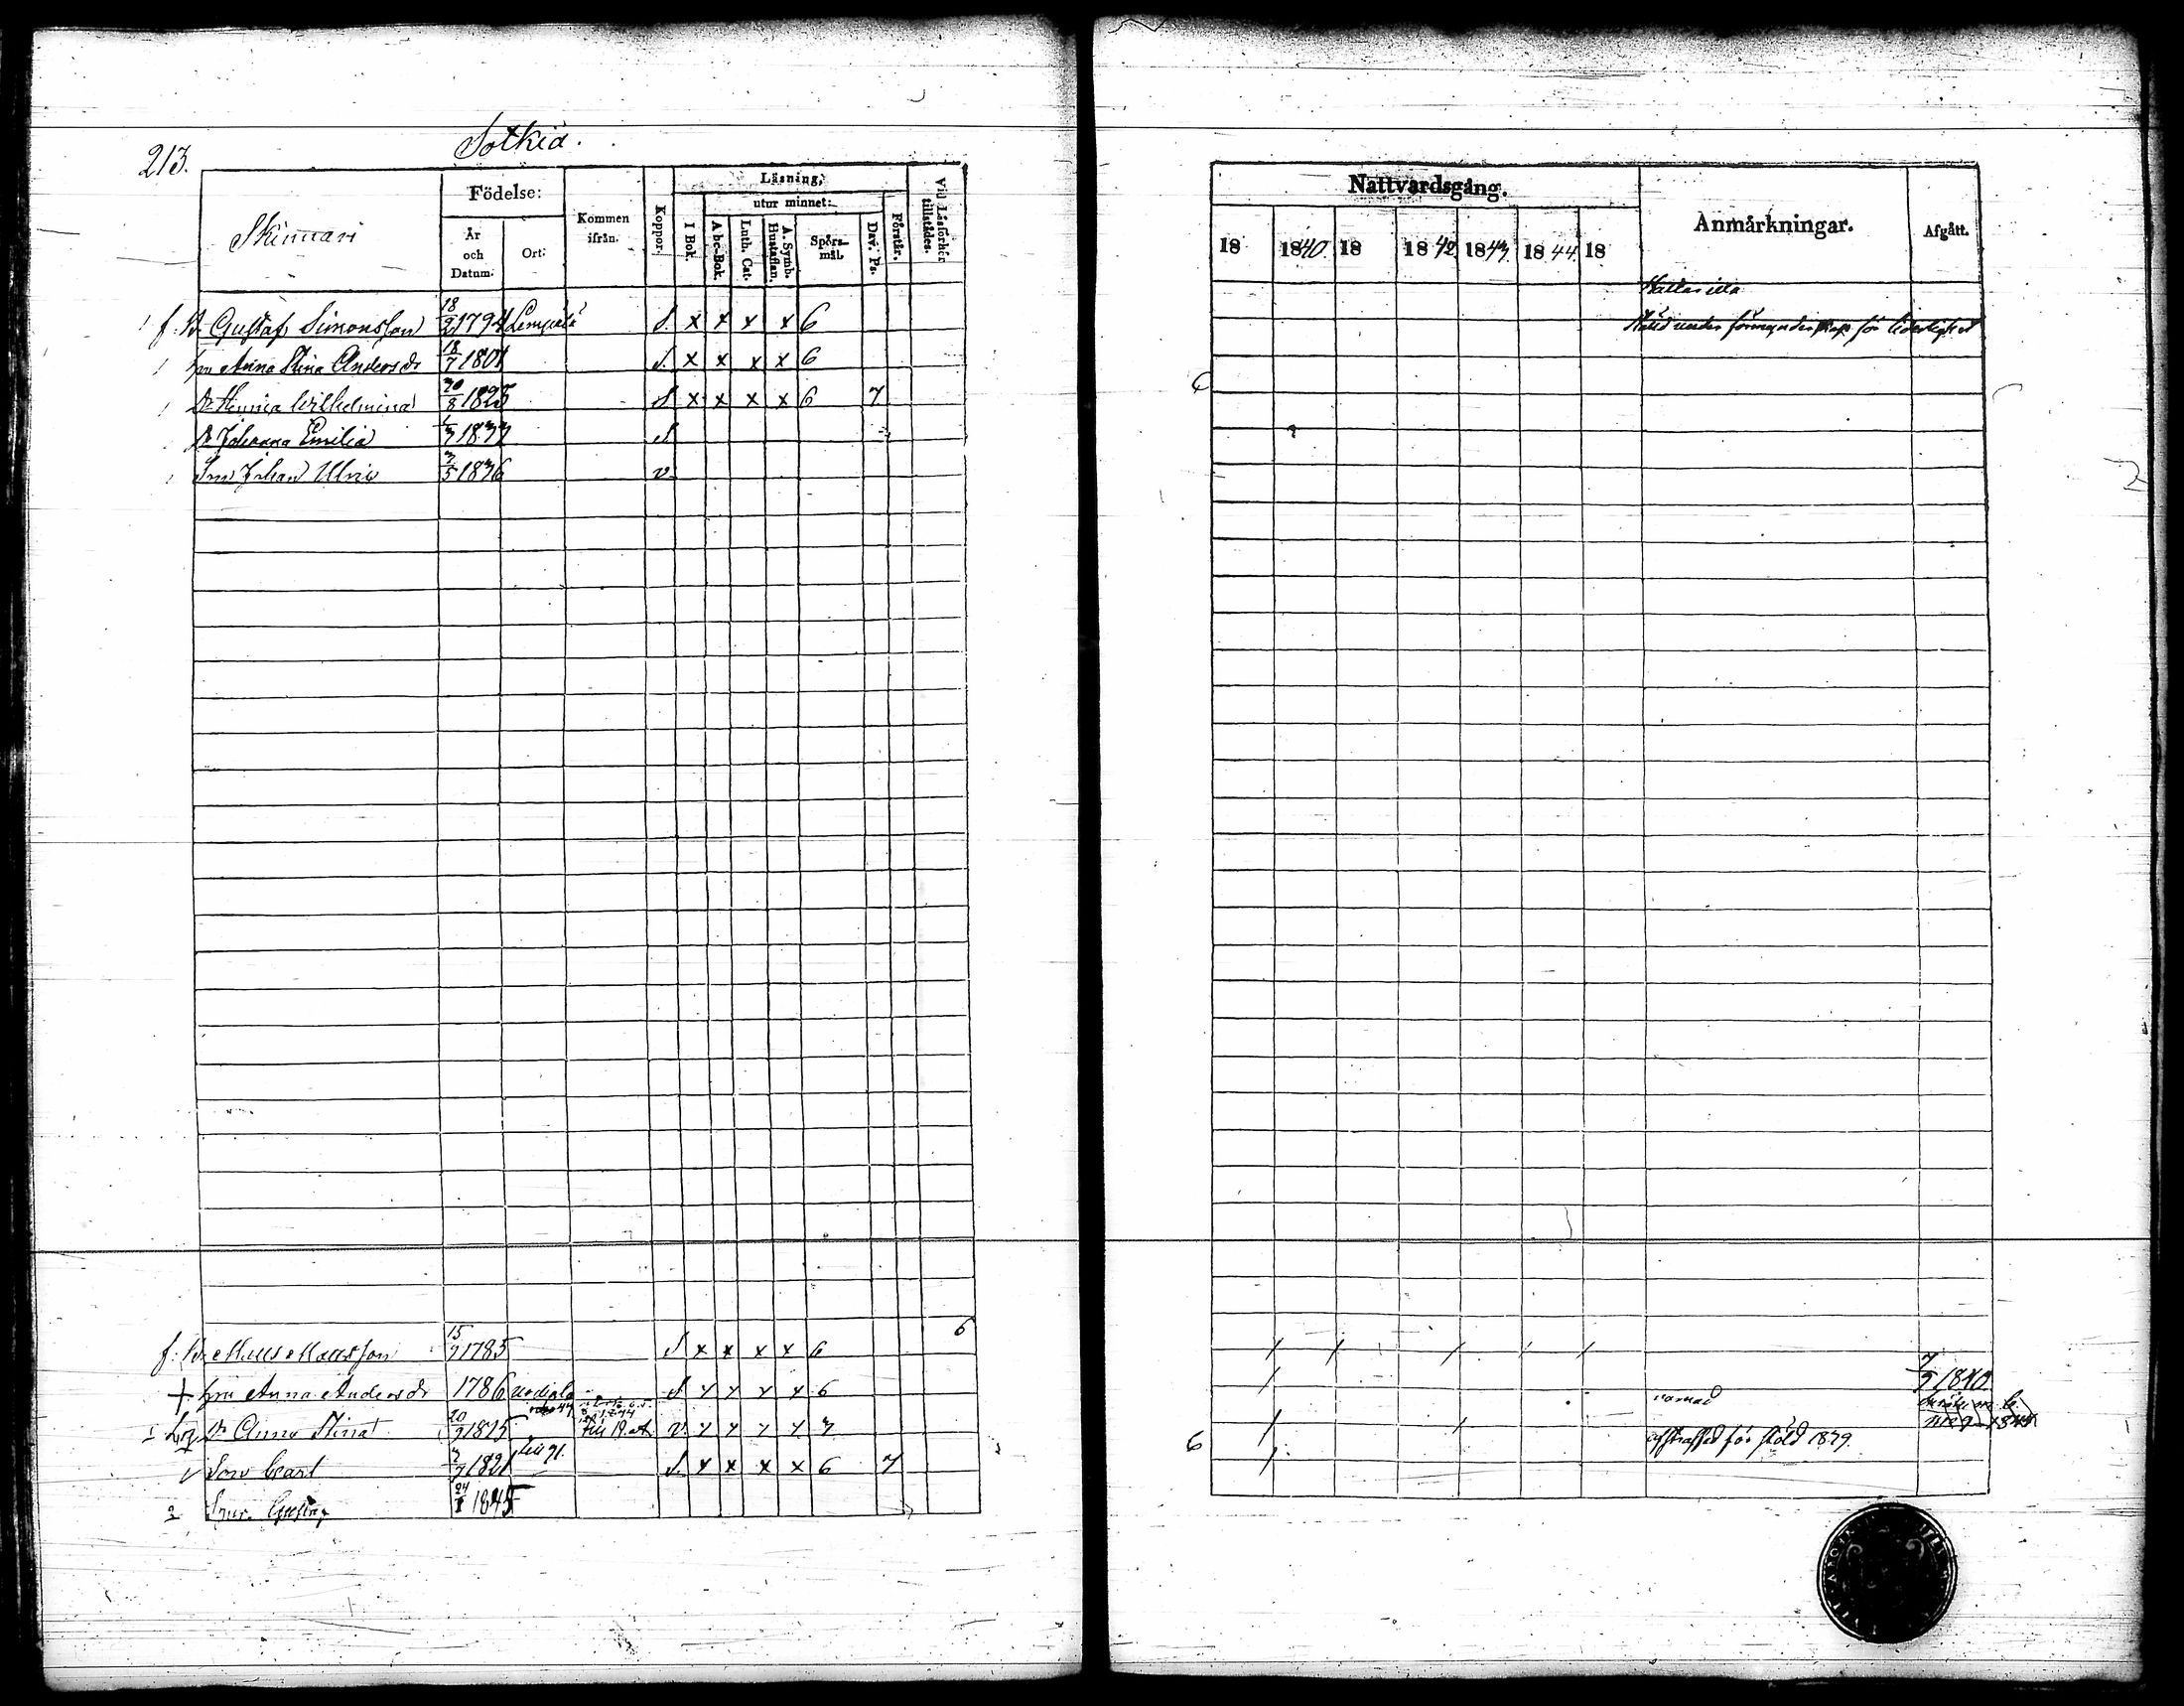 213.
Sotkia.
Skinnari
Födelse:
År och Datum:
Ort:
Kommen ifrån.
Koppor.
Läsning,
utur minnet:
I Bok.
Abc-Bok.
Luth. Cat.
A. Symb. Hustaflan.
Spörsmål.
Dav. Ps.
Förstår.
Vid Läsförhör tillstädes.
f. B. Gustaf Simonsson 18/2 1794 Lempälä S. x x x x 6
hu Anna Stina Andersdr 18/7 1801 S. x x x x 6
Dr Henrica Wilhelmina 30/8 1825 S x x x x 6 7
Dr Johanna Emilia 1837 S
Son Johan Ulric 3/5 1836 v.
6
f. B. Matts Mattsson 15/7 1785 S x x x x 6
+ hu Anna Andersdr 1786 S y y y y 6
Dr Anna Stina 20/7 1815 till 19. v. y y y y 7
Son Carl 7/7 1821 till 71. S. x x x x 6 7
Son Gustaf 24/1 1845
Nattvardsgång.
18 1840. 18 1842 1843 1844. 18
Anmärkningar.
Afgått.
Ställd under förmynderskap för liderlighet
6
7/7 1840.
varnad
6
afstraffad för stöld 1839.